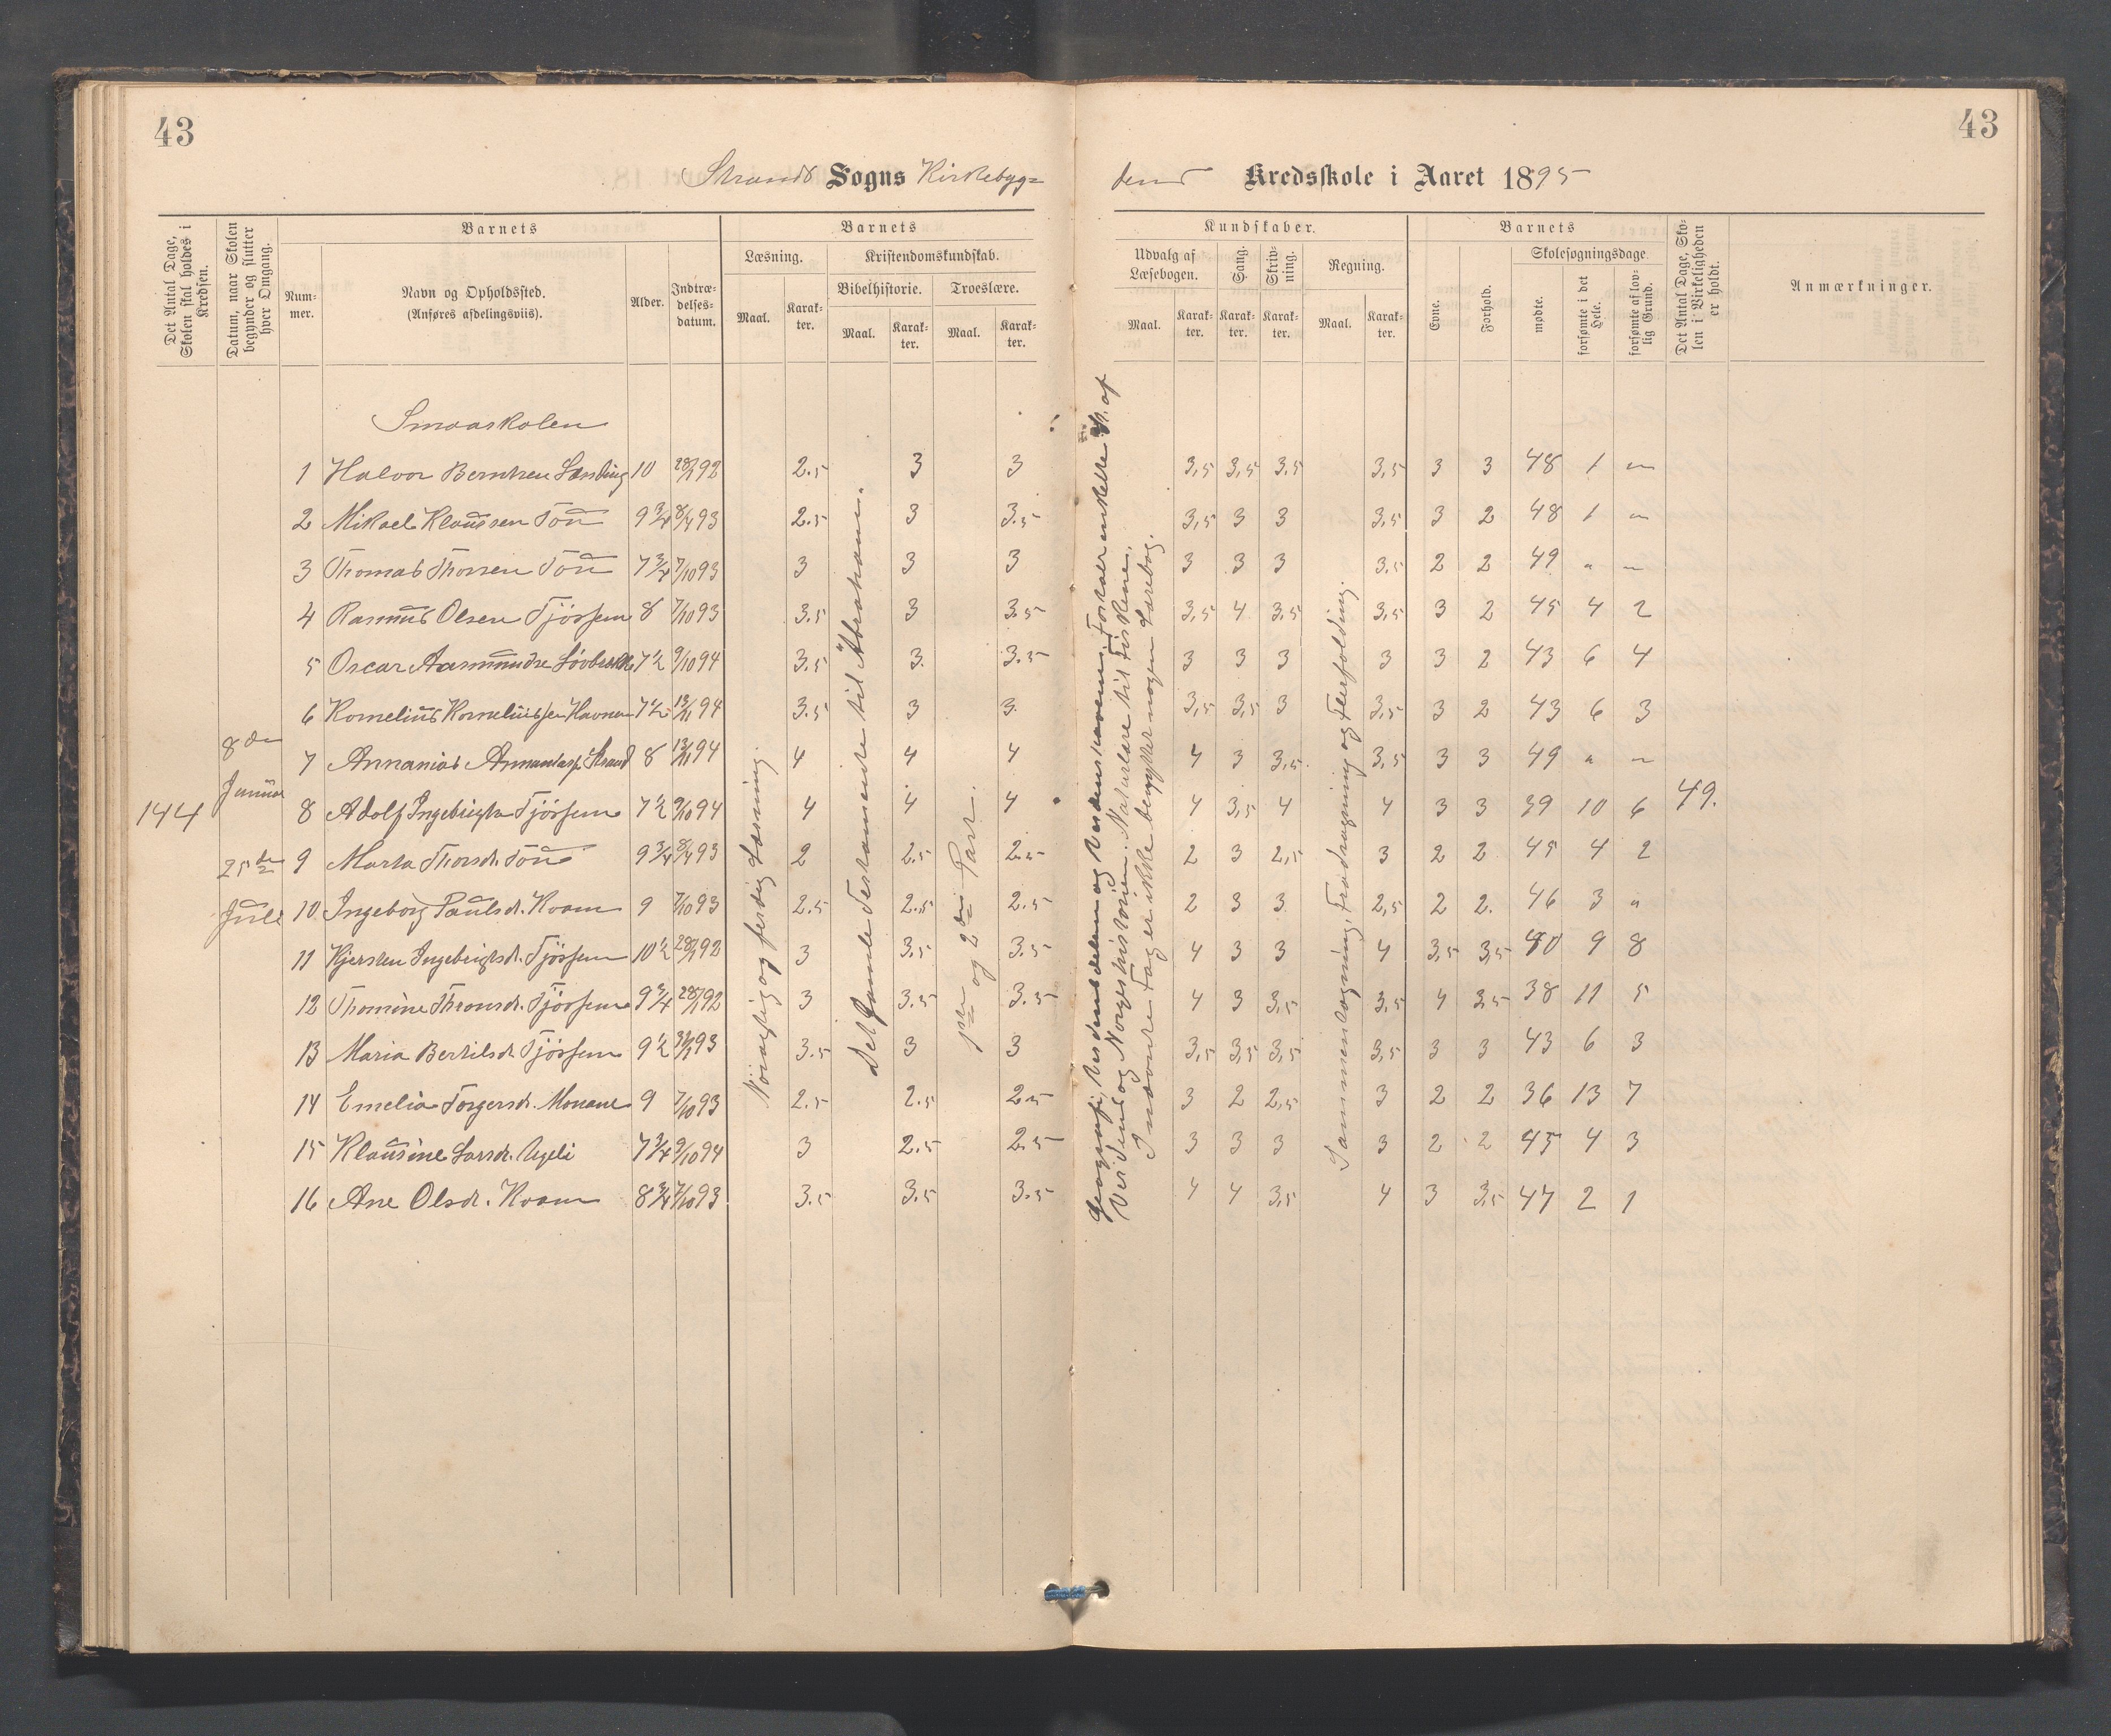 43
43
Strands Sogns Kirkebyg=
dens Kredsskole i Aaret 1895
Det Antal Dage, Skolen skal holdes i Kredsen.
Datum, naar Skolen begynder og slutter hver Omgang.
Barnets
Num-mer.
Navn og Opholdssted.
(Anføres afdelingsviis).
Alder.
Indtræ-delses-datum.
Barnets
Læsning.
Maal.
Karak-ter.
Kristendomskundskab.
Bibelhistorie.
Maal.
Karak-ter.
Troeslære.
Maal.
Karak-ter.
Kundskaber.
Udvalg af Læsebogen.
Maal.
Karak-ter.
Sang.
Karak-ter.
Skriv-ning.
Karak-ter.
Regning.
Maal.
Karak-ter.
Barnets
Evne.
Forhold.
Skolesøgningsdage.
mødte.
forsømte i det Hele.
forsømte af lov-lig Grund.
Det Antal Dage, Sko-len i Virkeligheden er holdt.
Anmærkninger.
Smaaskolen
144
8de Januar
25de Juli
Nöiagtig og ferdig Læsning.
Det gamle Testamente til Abraham.
1ste og 2den Part.
Geografi, Verdensdelene og Verdenshavene. Forskjer enkelte St. af
Verdens og Norgeshistorien. Naturlære til Fiskene.
I nævnte Fag er ikke benyttet nogen Lærebog.
Sammenlægning, Fradragning og Flerfolding.
1 Halvor Berntsen 10 28/1 92 2.5 3 3 3,5 3,5 3.5 3,5 3 3 48 1 „
2 Mikael Klaussen Tou 9 3/4 8/4 93 2.5 3 3.5 3,5 3 3 3,5 3 2 48 1 „
3 Thomas Thorsen Tou 7 3/4 7/10 93 3 3 3 3 3 3 3.5 2 2 49 „ „
4 Rasmus Olsen Tjössem 8 7/10 93 3.5 3 3.5 3,5 4 3.5 3,5 3 2 45 4 2
5 Oscar Aasmundse 7 1/2 9/10 94 3.5 3. 3.5 3 3 3 3 3 2 43 6 4
6 Kornelius Korneliussen Havnen 7 1/2 13/11 94 3.5 3 3. 3,5 3,5 3 3,5 3 2 43 6 3
7 Annanias Strand 8 13/11 94 4 4 4 4 3 3,5 3,5 3 3 49 „ „
8 Adolf Ingebrigts Tjössem 7 1/2 9/10 94 4 4 4 4 3,5 4 4 3 3 39 10 6 49.
9 Marta Thorsdr. Tou 9 3/4 8/4 93 2 2.5 2.5 2 3 2,5 3 2 2 45 4 2
10 Ingeborg Paulsdr. Kvam 9 7/10 93 2.5 2.5 2.5 2 3 3 2,5 2 2. 46 3 „
11 Kjersten Ingebrigtsdr. Tjössem 10 1/2 28/1 92 3 3.5 3.5 4 3 3 4 3,5 3,5 40 9 8
12 Thomine Thronsdr. Tjössem 9 3/4 28/1 92 3 3.5 3.5 4 3 3,5 3,5 4 3.5 38 11 5
13 Maria Bertilsdr. Tjössem 9 1/2 93 3.5 3 3 3,5 3,5 3,5 3,5 3 3 43 6 3
14 Emelia Torgersdr. Monane 9 7/10 93 2.5 2.5 2.5 3 2 2,5 3 2 2 36 13 7
15 Klausine Larsdr. Ugeli 7 3/4 9/10 94 3 2.5 2.5 3 3 3 3 2 2 45 4 3
16 Ane Olsdr. Kvam 8 3/4 7/10 93 3.5 3.5 3.5 4 4 3,5 4 3 3,5 47 2 1